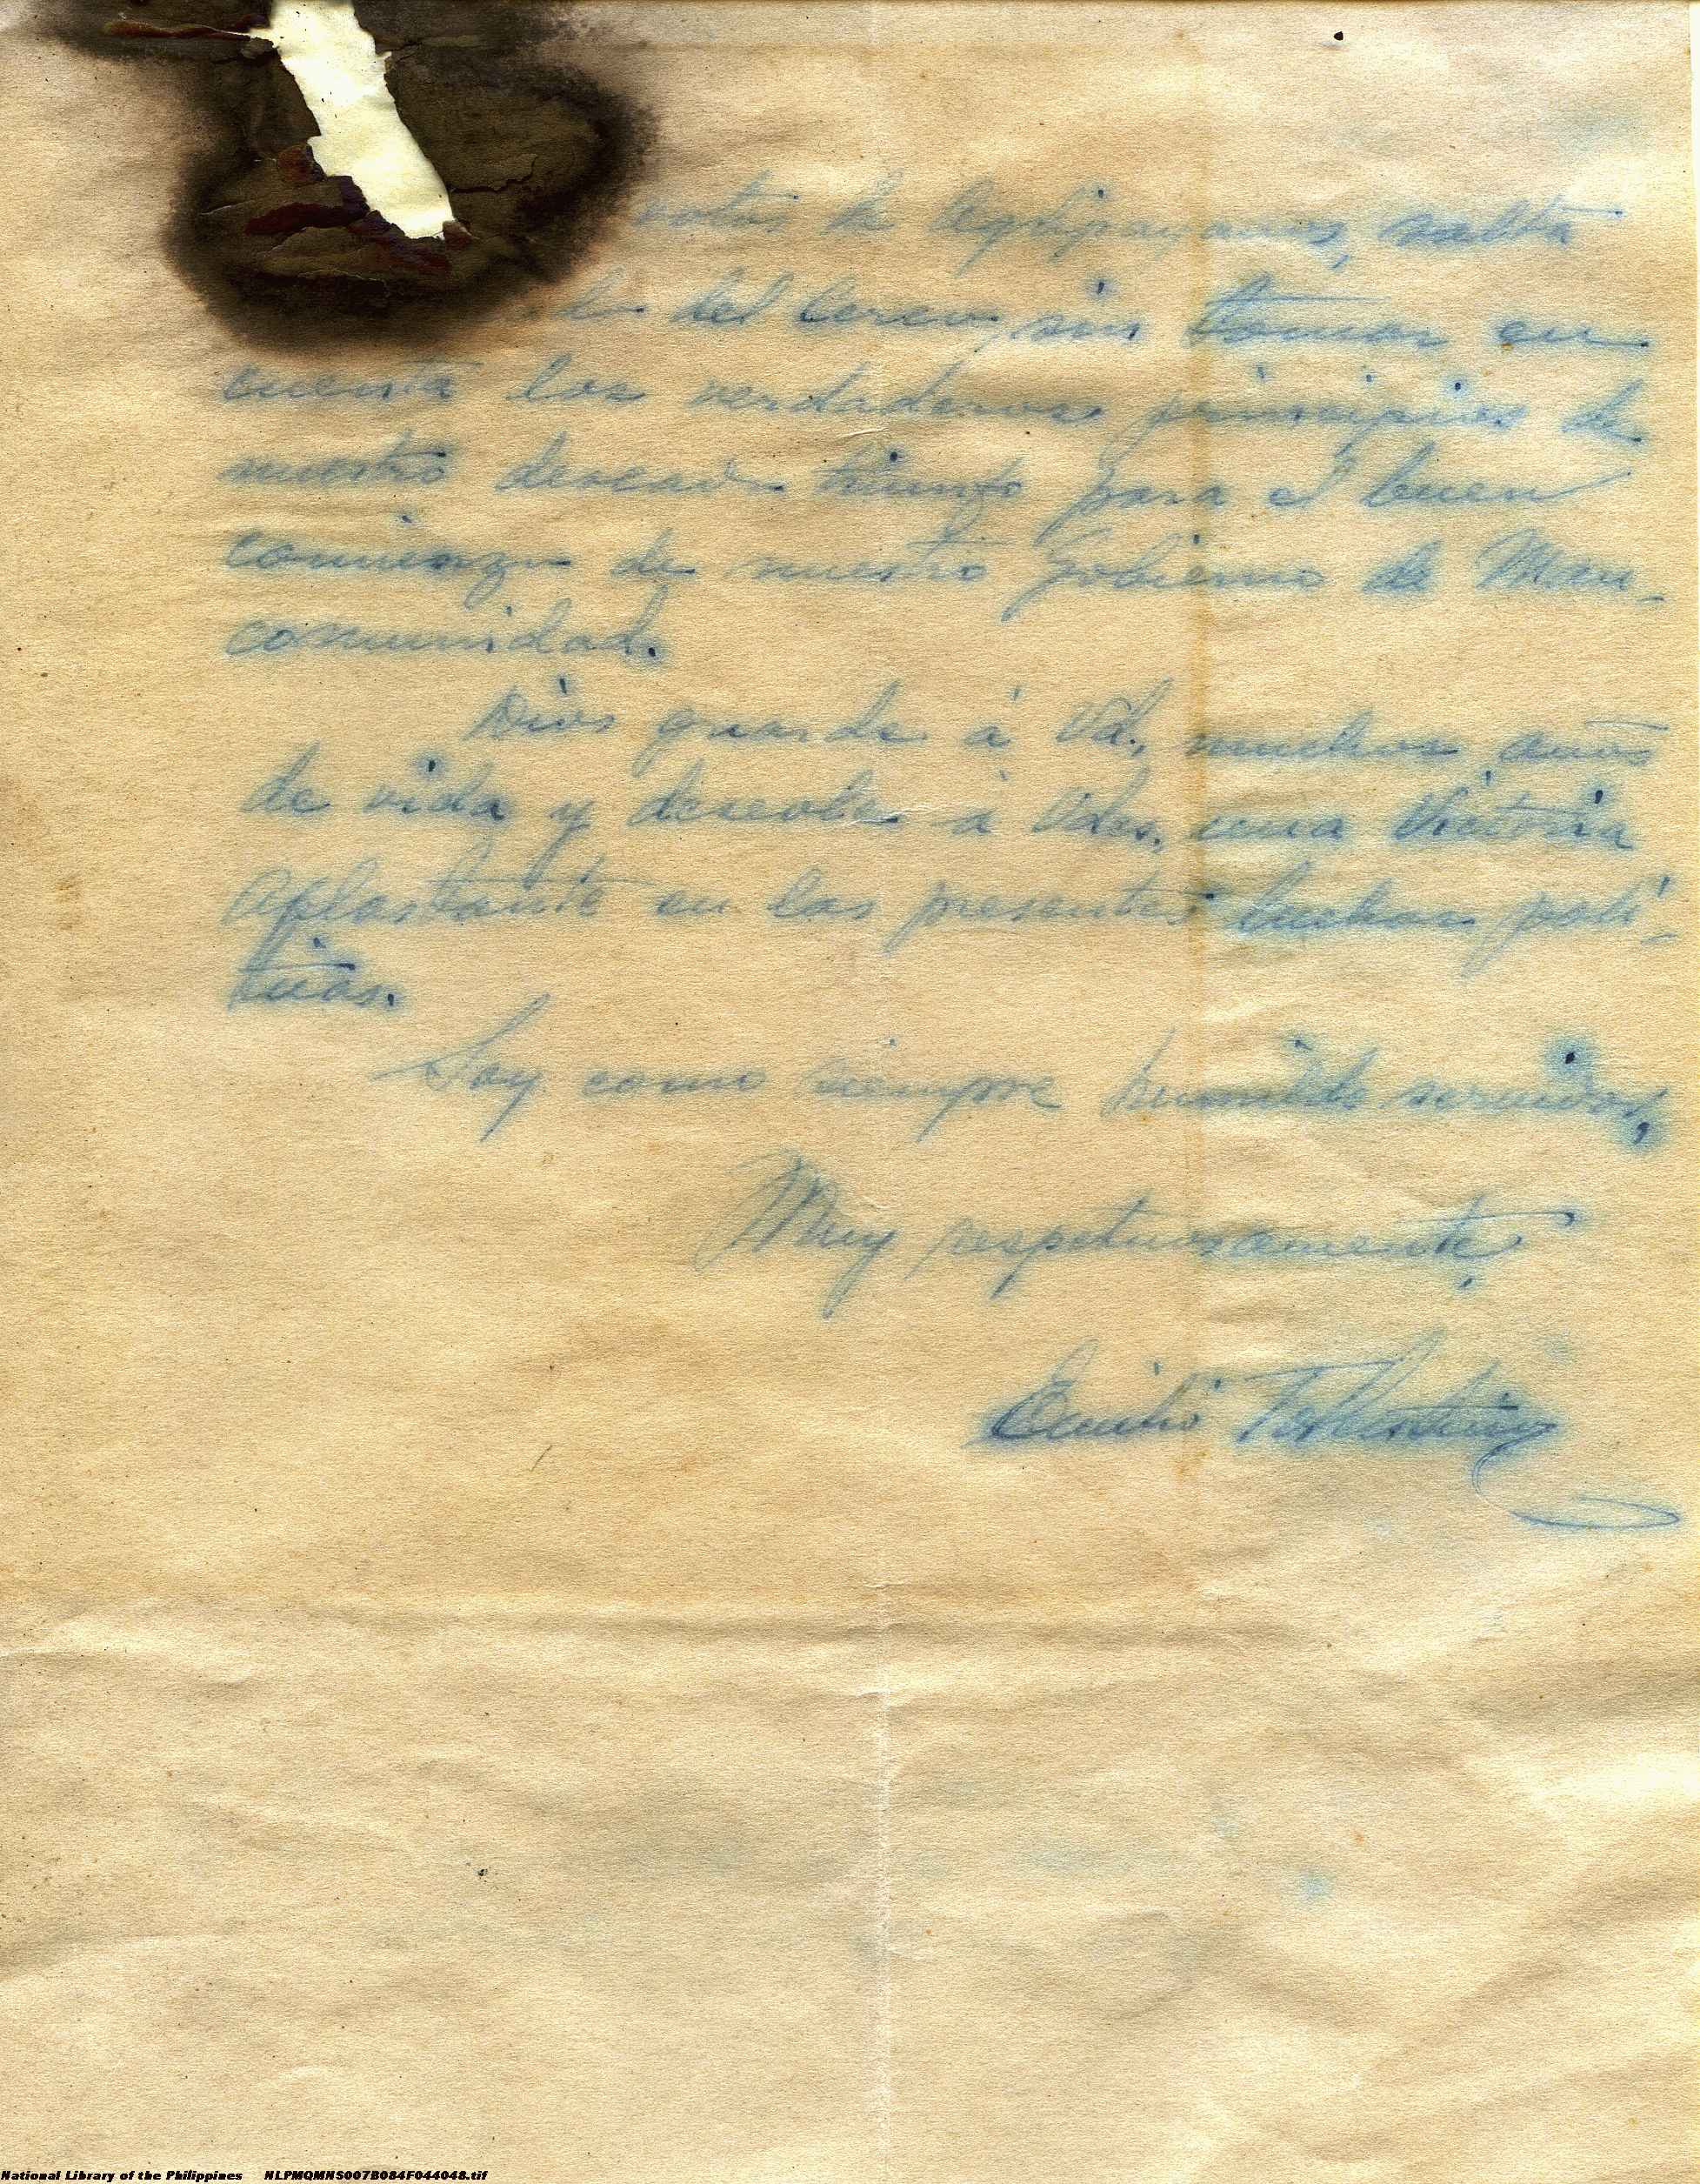 de Aglipayanos, salta
del cerco sin tomar en
cuenta los verdaderos principios de
nuestro deseado triunfo para el buen
comienzo de nuestro Gobierno de Man-
comunidad.
Dios guarde á Vd. muchos años
de vida y deseole á Vdes. una victoria
aplastante en las presentes luchas polí-
ticas.
Soy como siempre humilde servidor,
Muy respetuosamente,
Emilio
National Library of the Philippines NLPMQMNS007B084F044048.tif